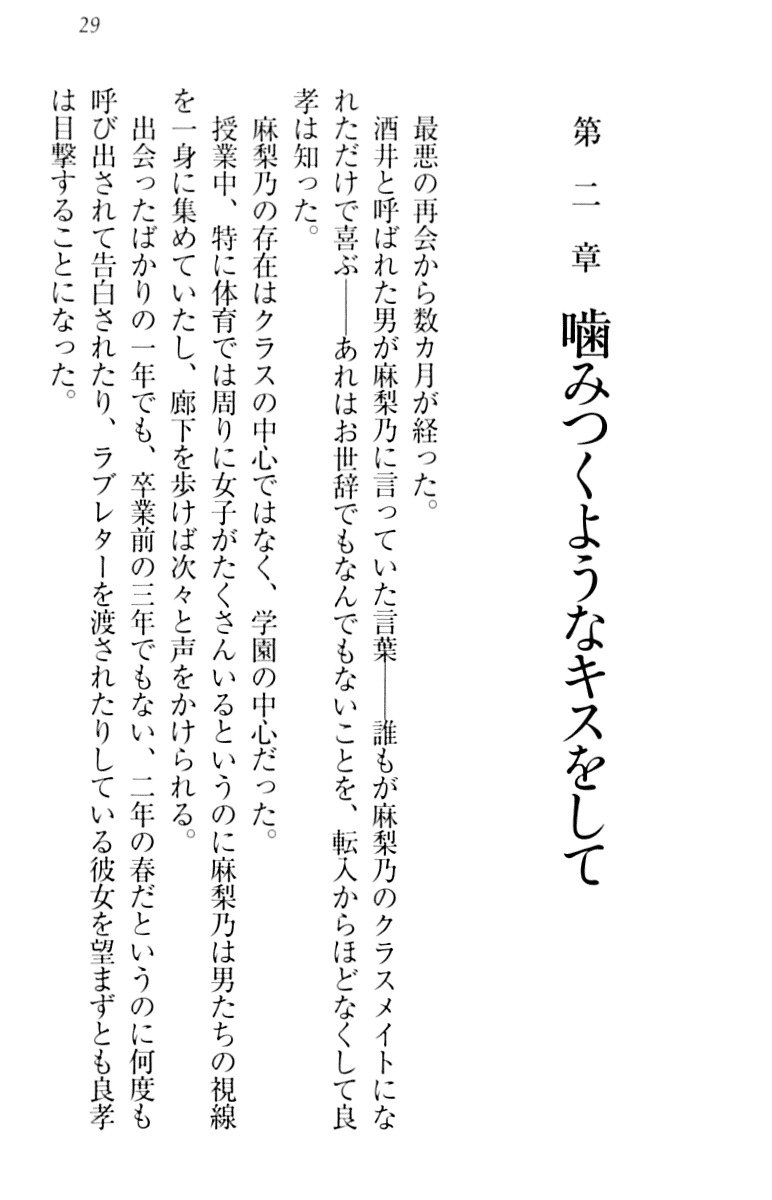 29
第二章 噛みつくようなキスをして
最悪の再会から数カ月が経った。
酒井と呼ばれた男が麻梨乃に言っていた言葉――誰もが麻梨乃のクラスメイトにな
れただけで喜ぶ――あれはお世辞でもなんでもないことを、転入からほどなくして良
孝は知った。
麻梨乃の存在はクラスの中心ではなく、学園の中心だった。
授業中、特に体育では周りに女子がたくさんいるというのに麻梨乃は男たちの視線
を一身に集めていたし、廊下を歩けば次々と声をかけられる。
出会ったばかりの一年でも、卒業前の三年でもない、二年の春だというのに何度も
呼び出されて告白されたり、ラブレターを渡されたりしている彼女を望まずとも良孝
は目撃することになった。